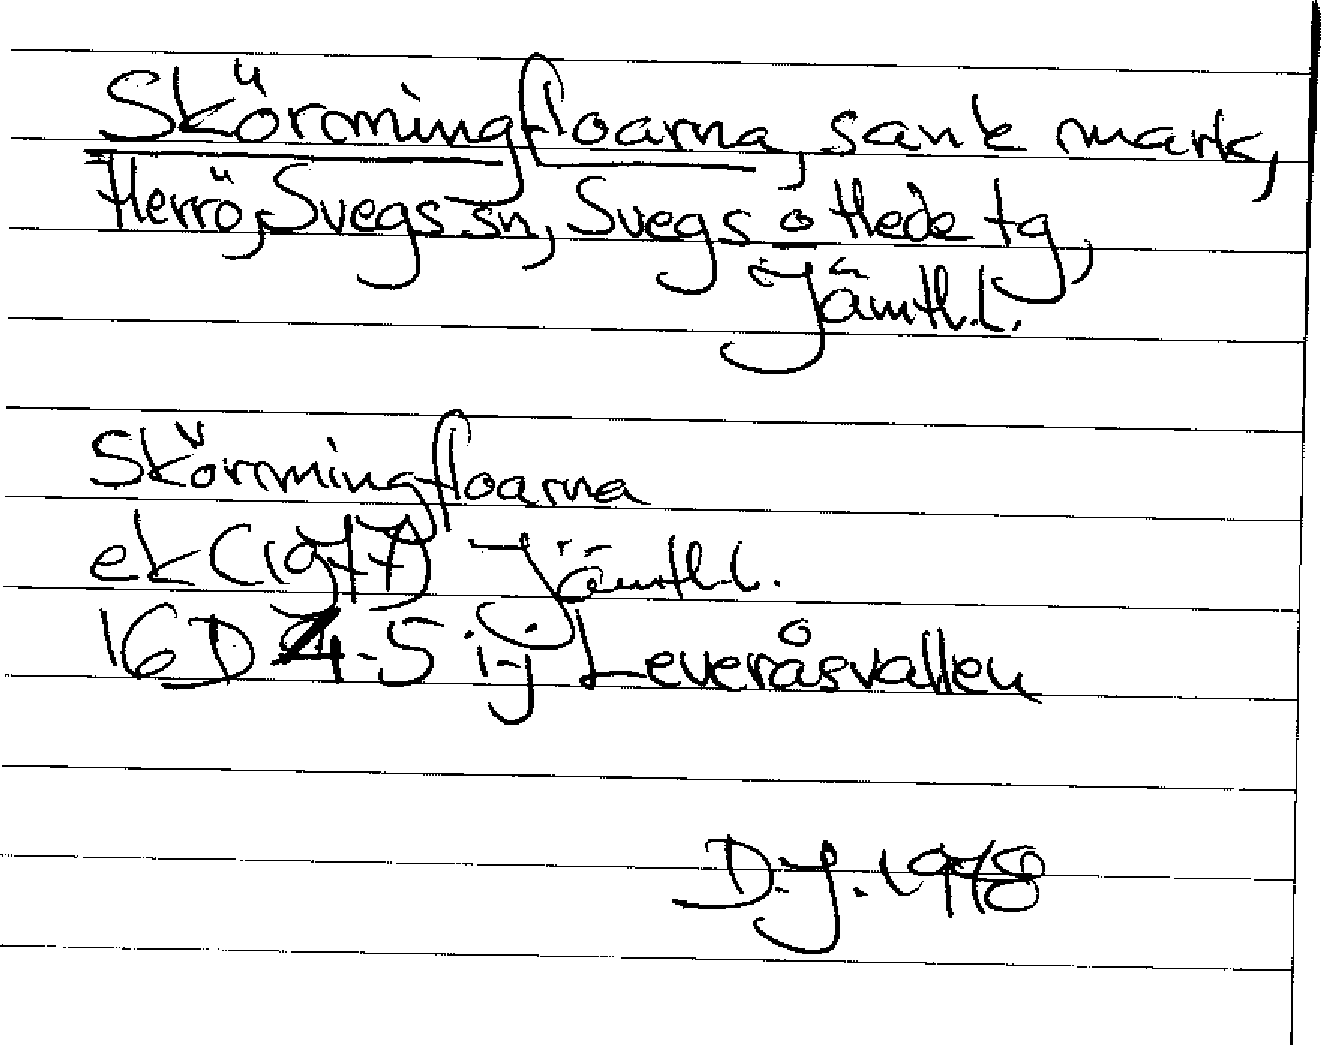 Skörmningfloarna, sank mark,
Herrö, Svegs sn, Svegs o Hede tg,
Jämtl. l.
Skörmningfloarna
ek (1977) Jämtl. l.
16D 4-5 i-j Leveråsvallen
D.J. 1978